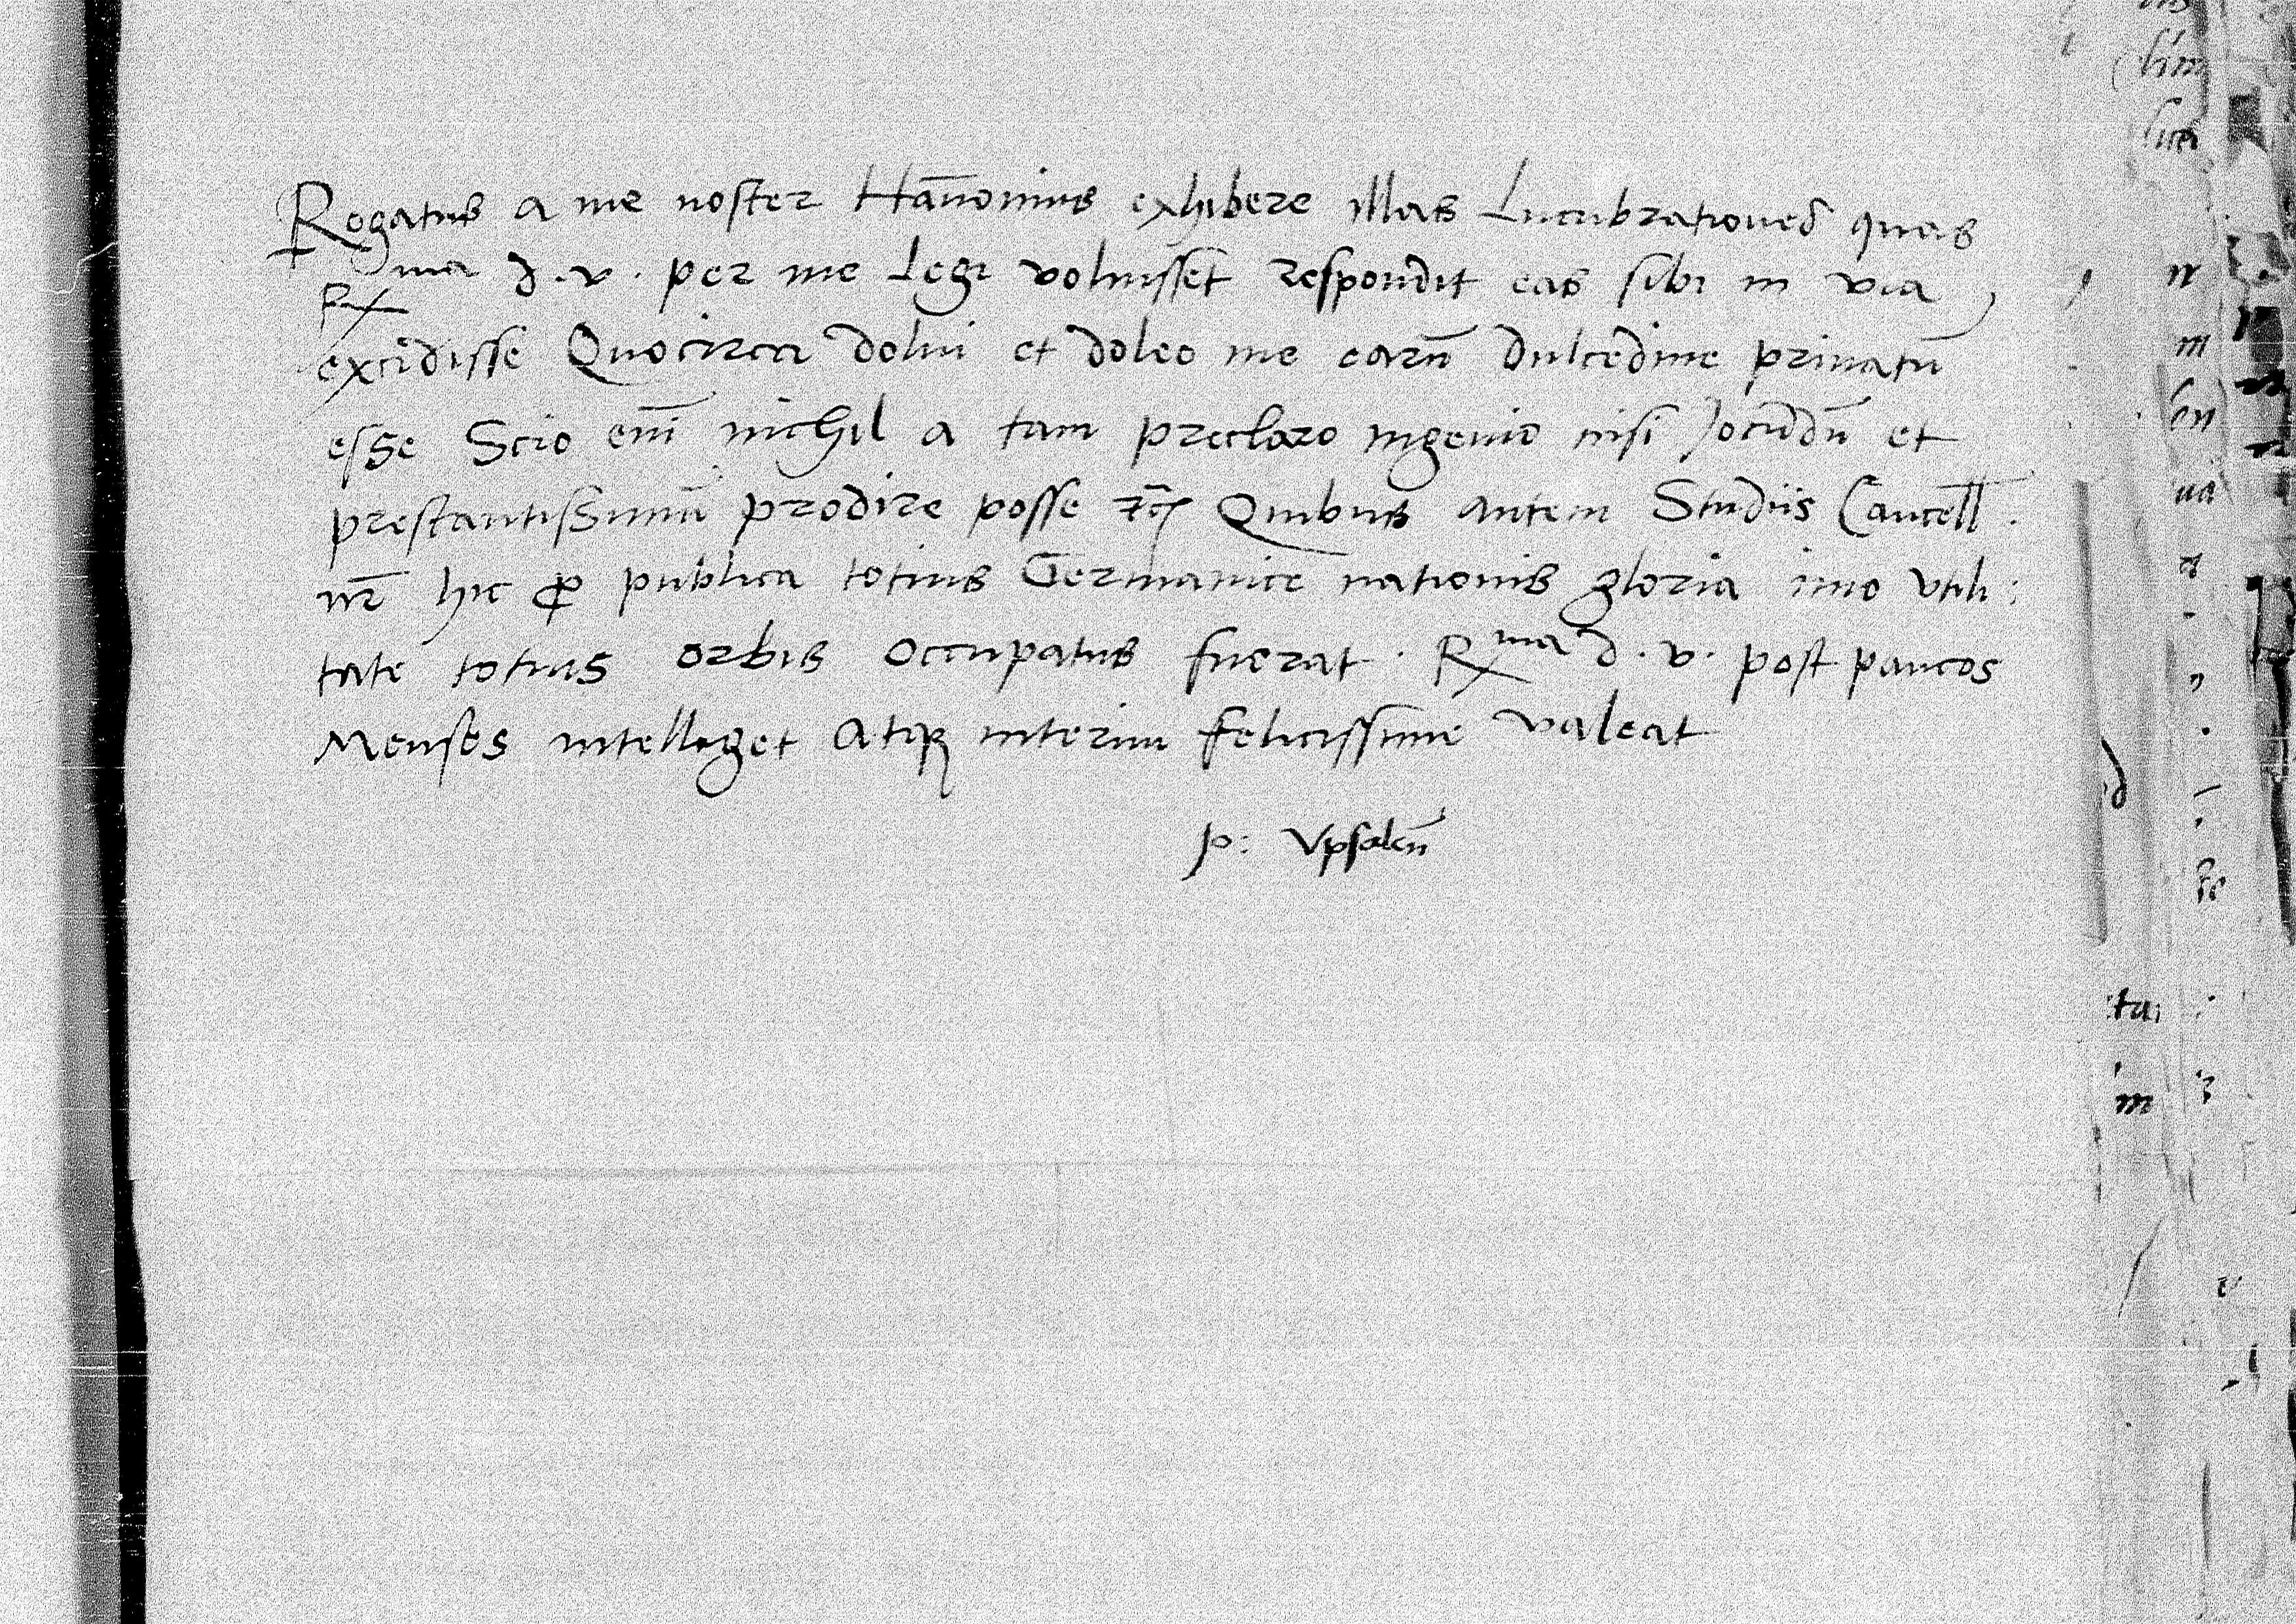 Rogatus a me noster Hānonius exhibere illas Lucubrationes quas
Rx ma d. v. per me Legi voluisset respondit eas sibi in via
excidisse Quocirca dolui et doleo me earū dulcedine priuatū
esse Scio eni̅ nichil a tam preclaro ingenio nisi Jocūdū et
prestantissimū prodire posse ⁊c̄ Quibus autem Studiis Cancell̅.
nr̄ hic ꝓ publica totius Germanice nationis gloria imo vtili:
tate totius orbis occupatus fuerat. Rxma d. v. post paucos
Menses intelliget Atqꝫ interim felicissime valeat
p: Vpsalen̄